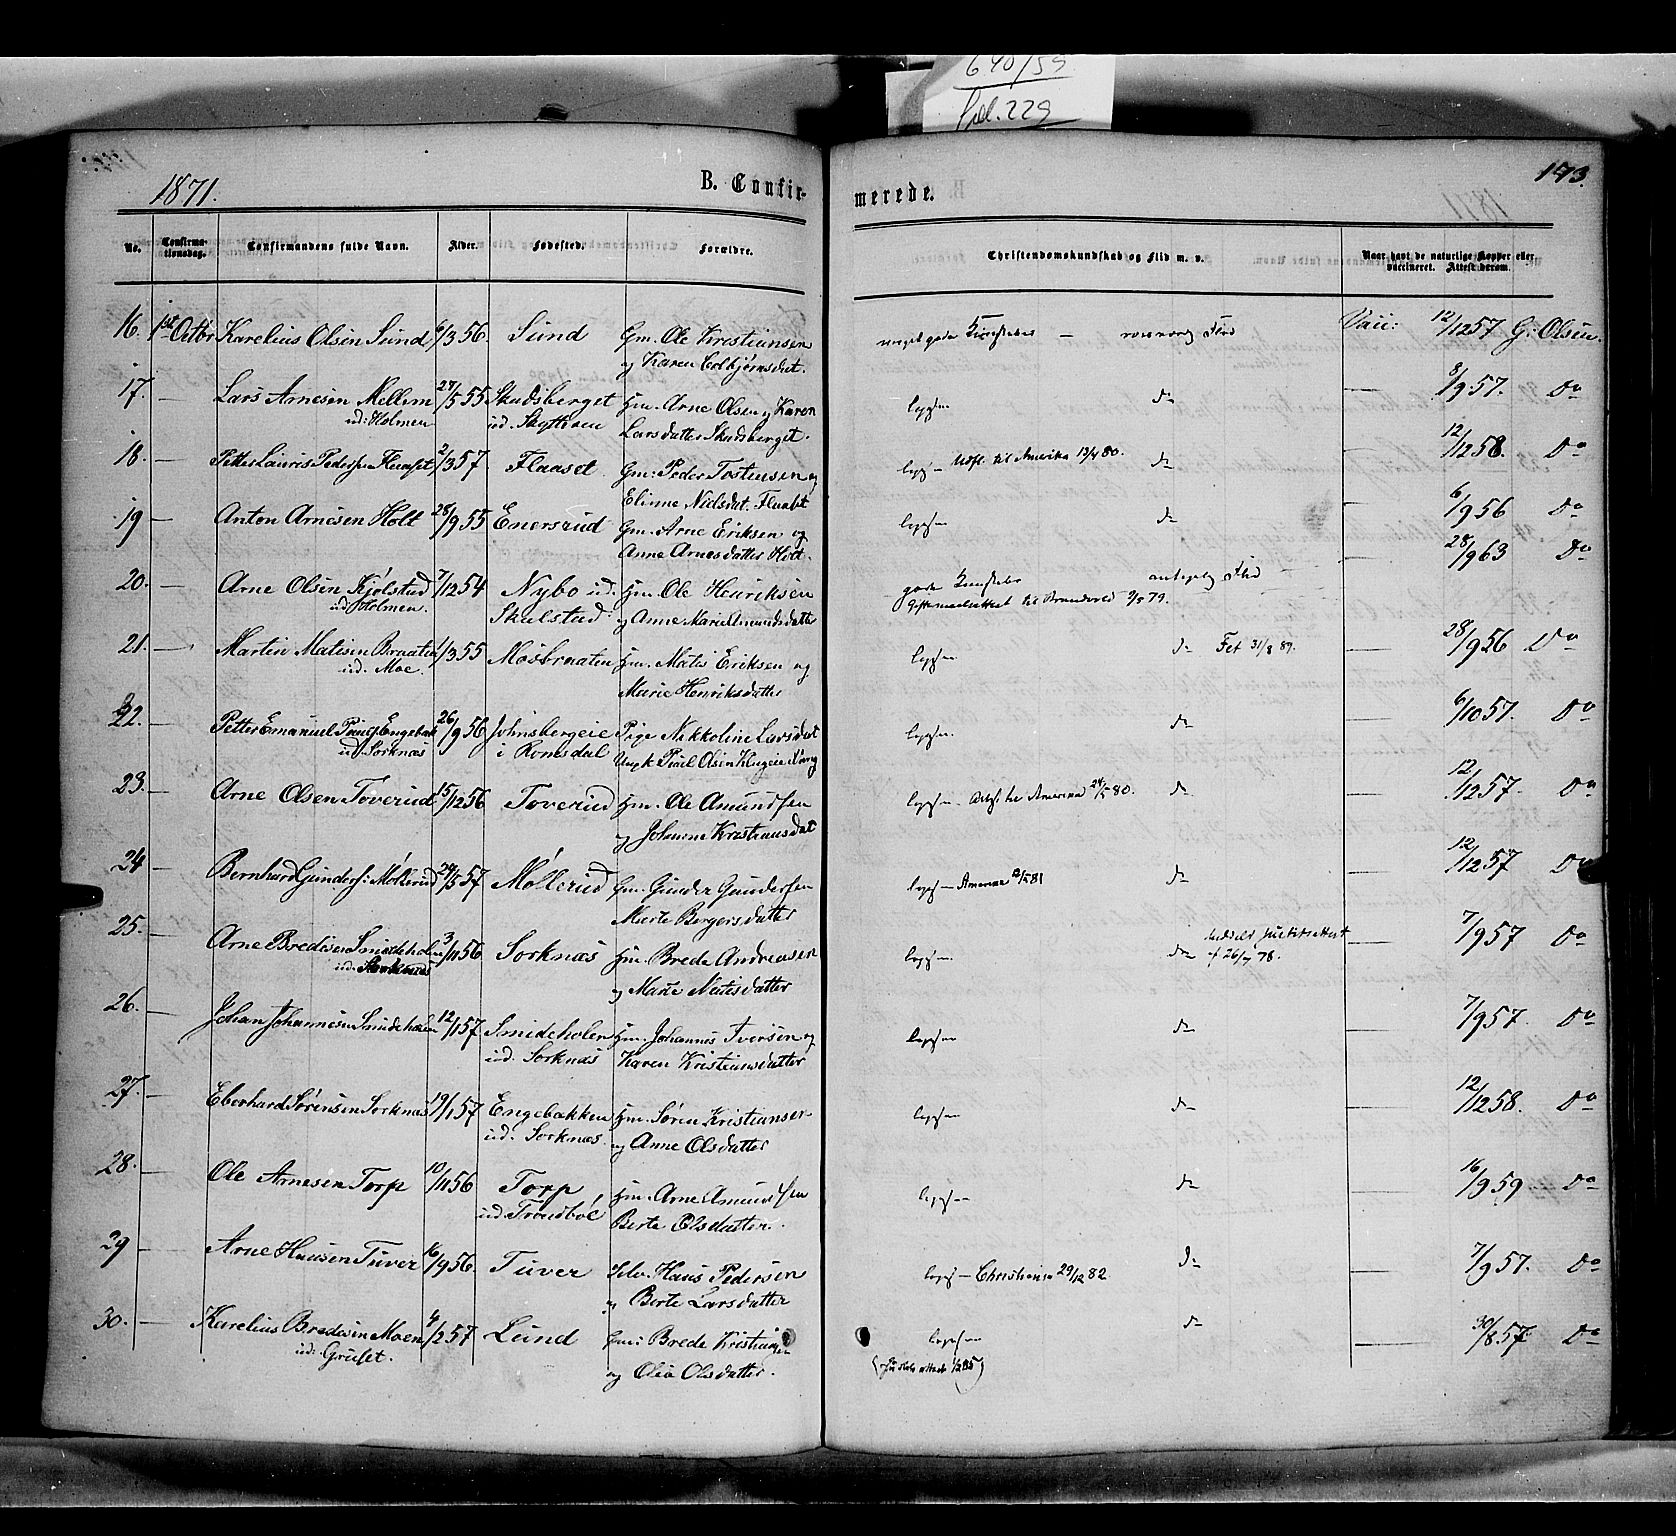 640/59
fol. 229
1871.
B. Confir-
merede.
193.
No.
Confirma-
tionsdag.
Confirmandens fulde Navn.
Alder.
Fødested.
Forældre.
Christendomskundskab og Flid m. v.
Naar havt de naturlige Kopper eller
vaccineret. Attest derom.
16. 1ste Octbr Karelius Olsen Sund 6/3 56. Sund Gm. Ole Kristiansen
og Karen
meget gode Kundskaber — Flid Vacc: 12/12 57 G: Olsen.
17. — Lars Arnesen Mellem 27/5 55 Skudsberget Hm. Arne Olsen og Karen
ud. Holmen ud. Larsdatter Skudsberget.
Do — 8/9 57. Do
18. — Petter Lauris Pedersen 2/3 57 Flaaset Gm: Peder Tostensen og
Elinne Nielsdat. Flaaset
Udfl. til Amerika 13/4 80. Do — 12/12 58. Do
19 — Anton Arnesen Holt 28/9 55 Enersrud Gm. Arne Eriksen og
Anne Arnesdatter Holt.
Do — 6/9 56 Do
20. — Arne Olsen Kjølstad 7/12 54 Nybo ud. Hm. Ole Henriksen
ud. Holmen. Skulstad og Anne Marie Amundsdatter
gode Kundskaber Flid — 28/9 63 Do
til Brandvold 9/5 79.
21. — Martin Matisen Braaten 1/3 55 Mosbraaten Hm. Matis Eriksen og
ud. Moe. Marie Henriksdatter
Do Fet 31/8 89. — 28/9 56 Do
22. — Petter Emanuel Engebak 26/9 56 Johnsbergeie Pige Nikkoline Larsdat
ud. Sorknæs i Romsdal Ungk Poul Olsen
Do — 6/10 57. Do
23. — Arne Olsen Toverud 15/12 56 Toverud Hm. Ole Amundsen
og Johanne Kristiansdat
til Amerika 24/5 80. Do — 12/12 57. Do
24 — Bernhard Gunders: Møllerud 27/5 57 Møllerud Gm. Gunder Gundersen
Marte Bergersdatter
Amerika 12/5 81 Do — 12/12 57 Do
25. — Arne Bredesen Smideholen 3/11 56 Sorknæs Hm. Brede Andreasen
ud. Sorknæs og Marte Matisdatter
Do 26/7 78. — 7/9 57 Do
26. — Johan Johannesen Smideholen 12/1 57. Smideholen Hm. Johannes Iversen og
ud. Sorknæs Karen Kristiansdatter
Do — 7/9 57. Do
27. — Eberhard Sørensen Sorknæs 19/1 57 Engebakken Hm. Søren Kristiansen
ud. Sorknæs. og Anne Olsdatter
Do — 12/12 58. Do
28. — Ole Arnesen Torp 10/11 56 Torp Hm. Arne Amundsen
ud. Trondbøl Berte Olsdatter.
Do — 16/9 59. Do
29 — Arne Hansen Tuver 16/9 56. Tuver Selv. Hans Pedersen
og Berte Larsdatter
Christiania 29/12 82. Do — 7/9 57. Do
30. — Karelius Bredesen Moen 4/2 57 Lund Gm: Brede Kristiansen
ud: Gruset. og Olea Olsdatter.
Do — 30/8 57. Do